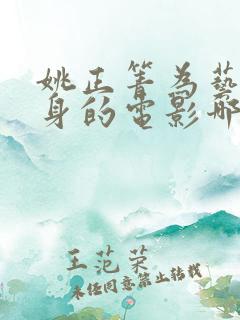 姚正箐为藝
身的电影那
王范荣
未经同意禁止转载